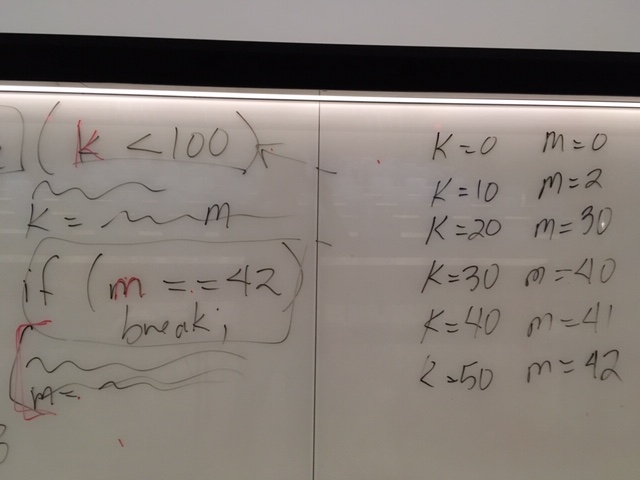 (k < 100)
k = m
if (m == 42)
break;
m =
K=0 m=0
K=10 m=2
K=20 m=30
K=30 m=40
K=40 m=41
K=50 m=42